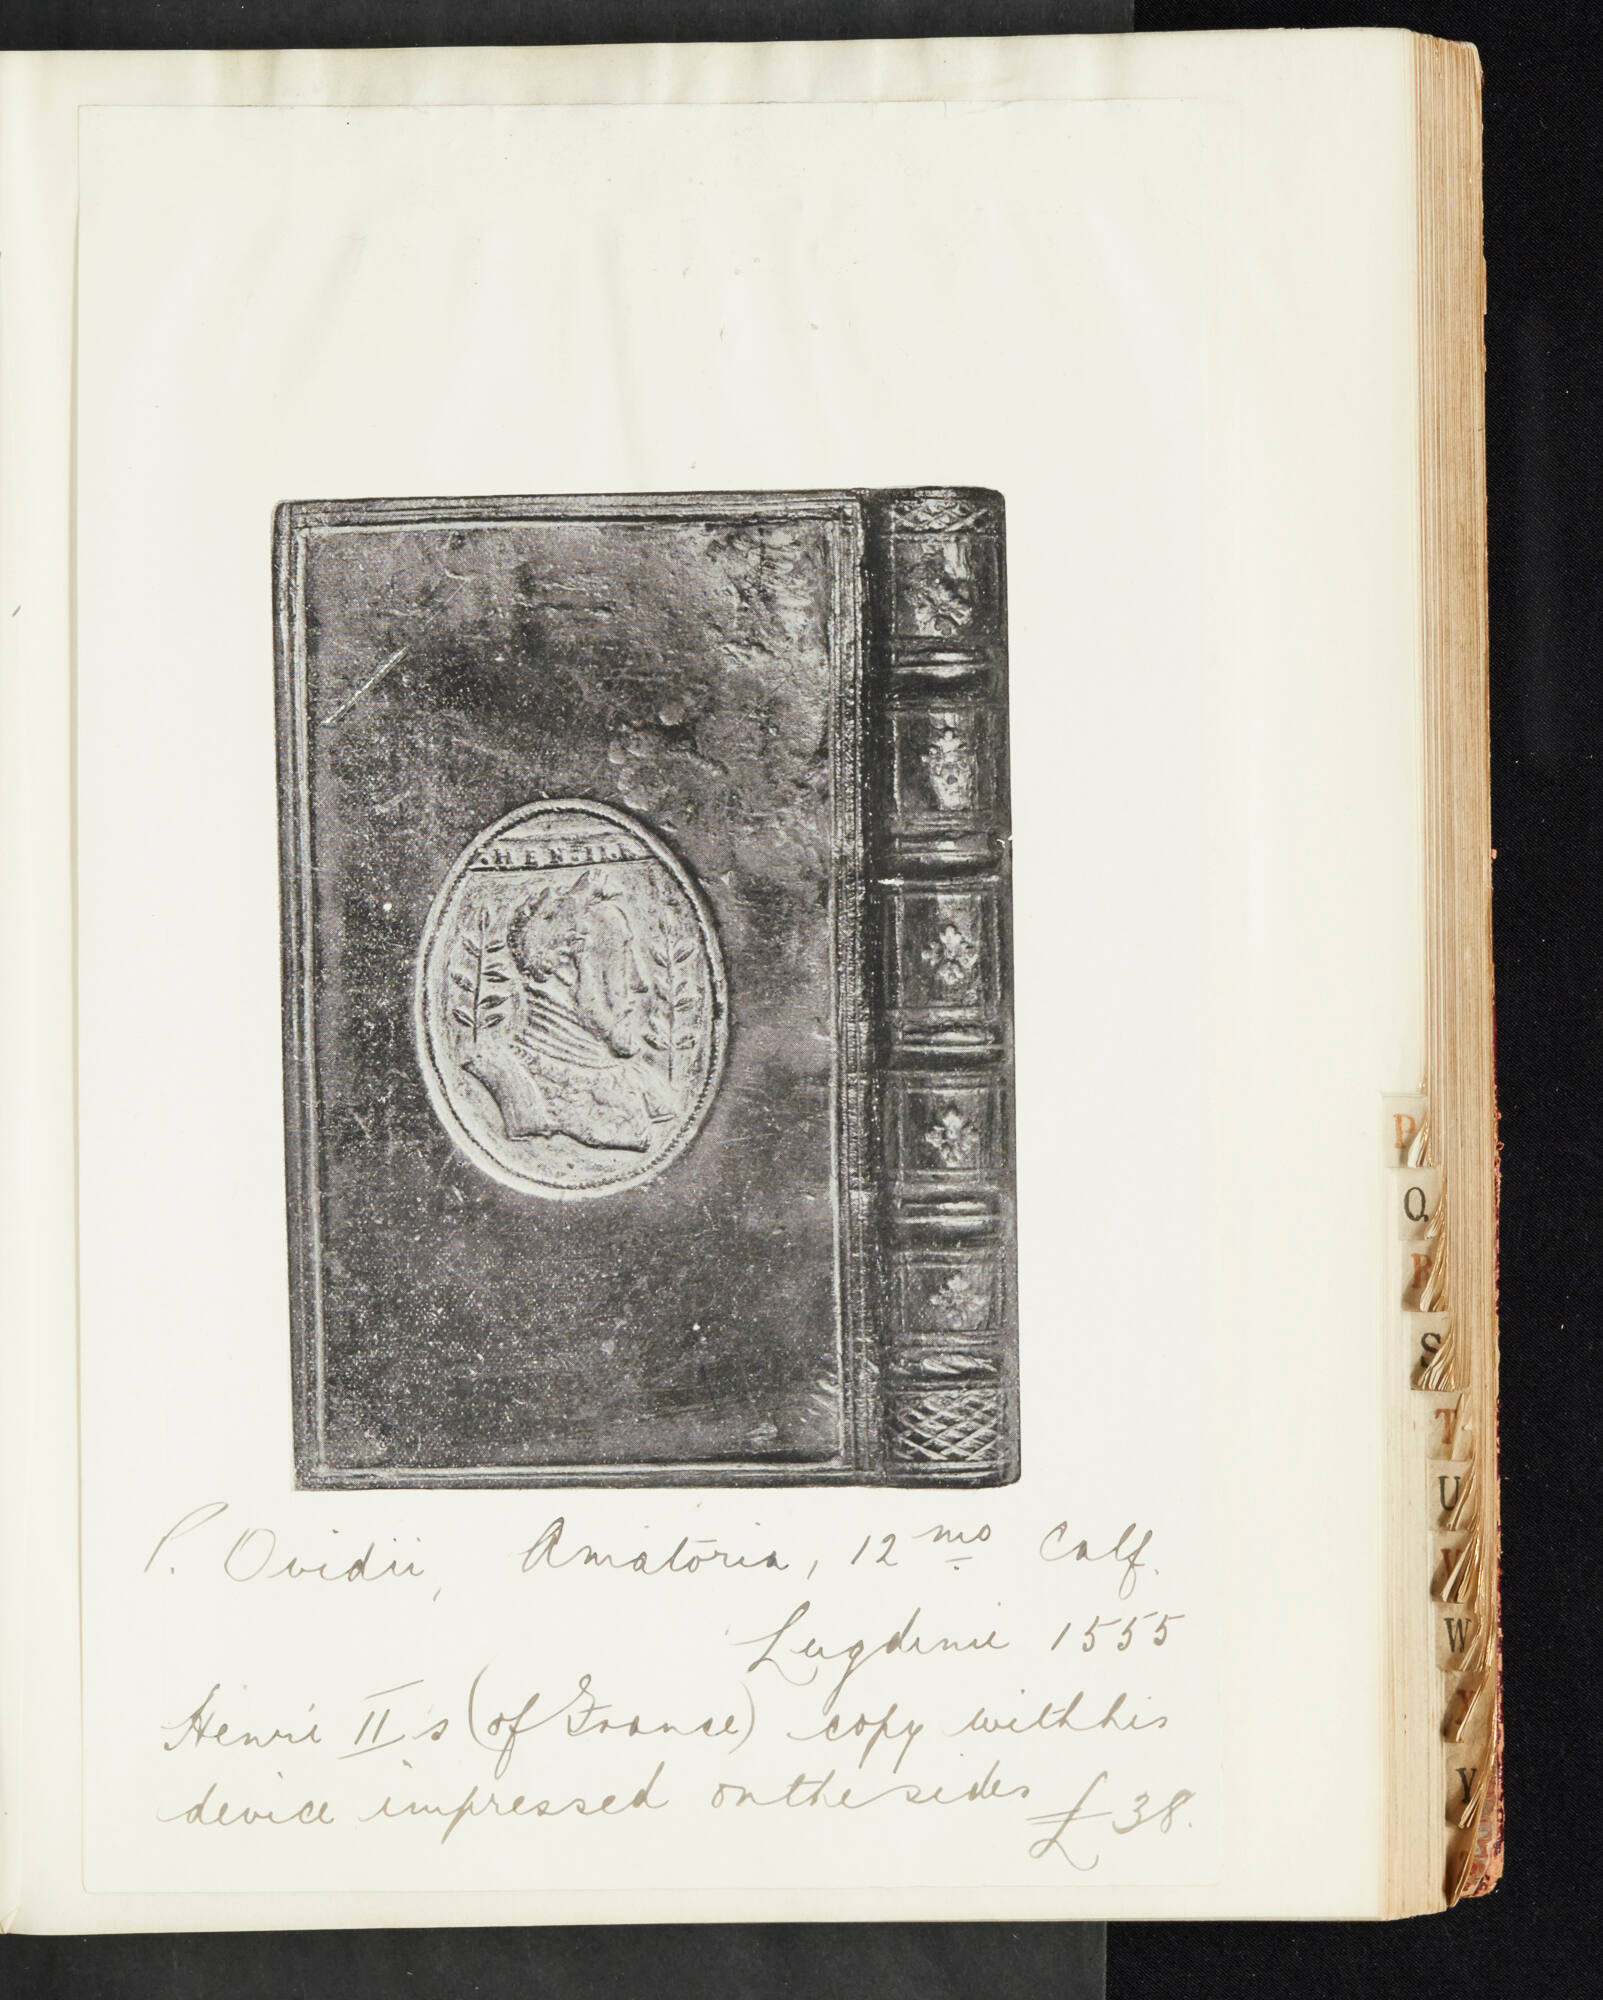 HENRII
P. Ovidii, Amatoria, 12mo Calf.
Lugdunii 1555
Henri II's (of France) copy with his
device impressed on the sides £38.
P
Q
R
S
T
U
V
W
X
Y